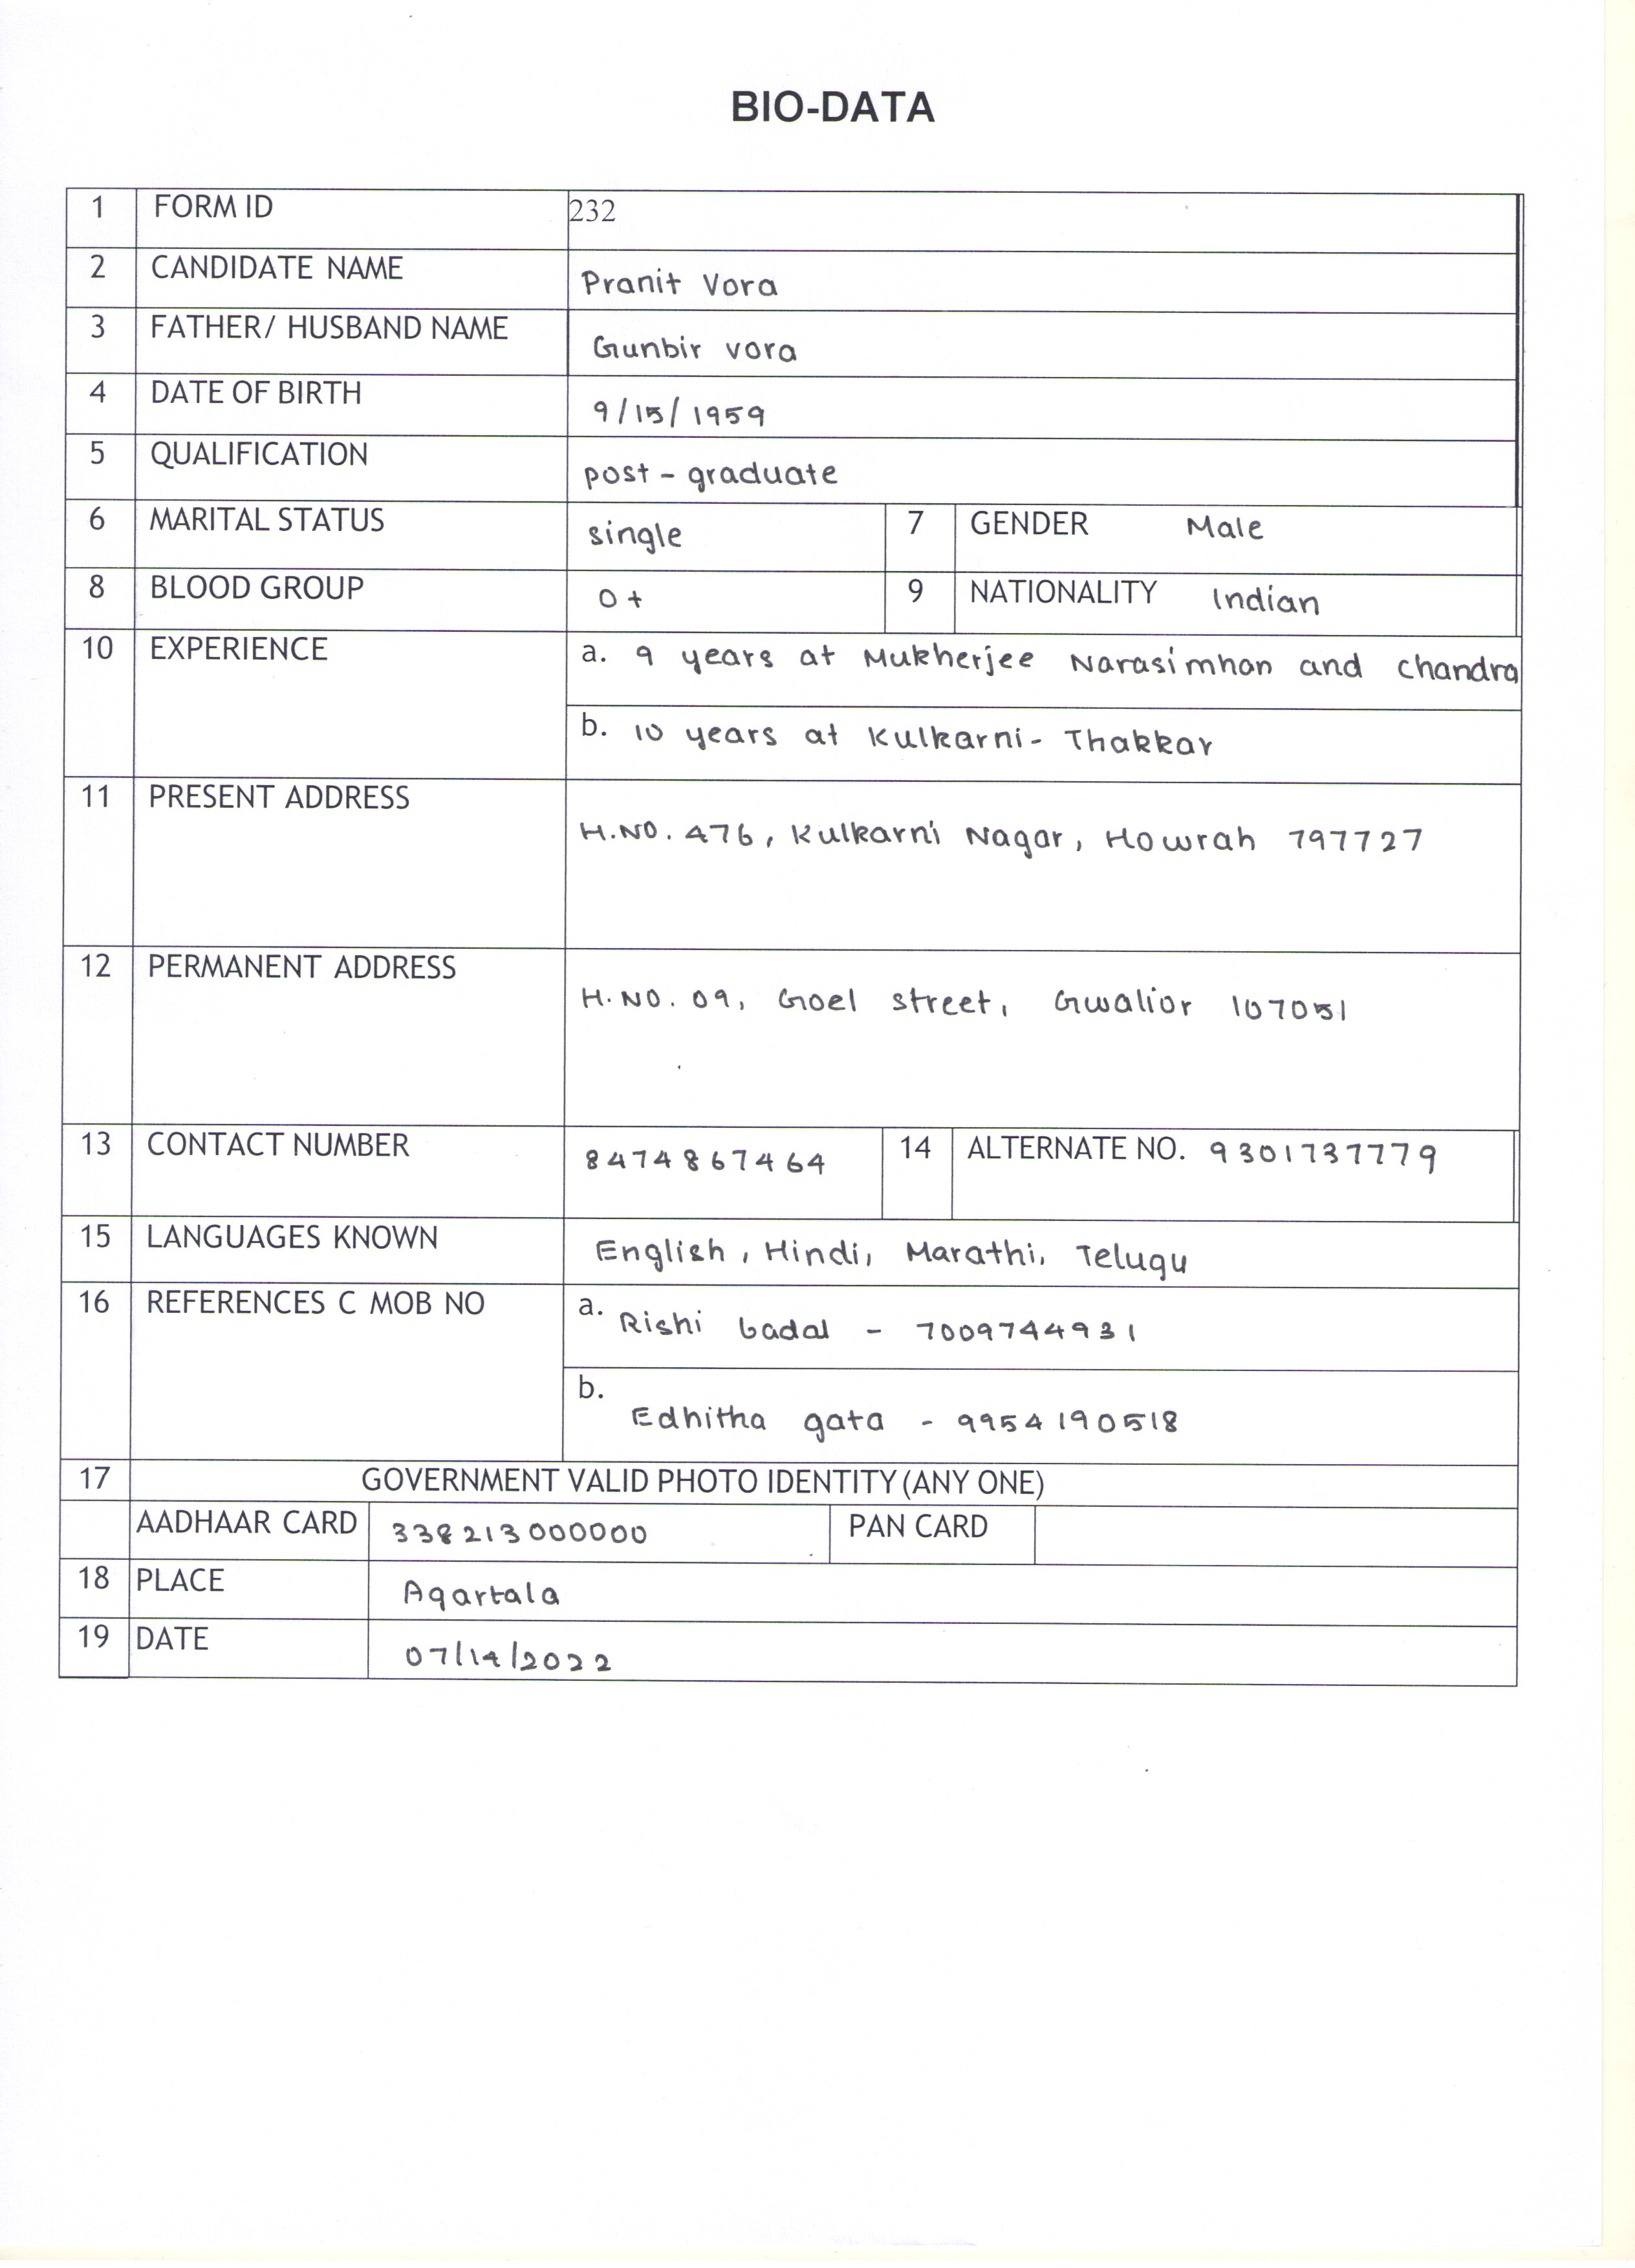 BIO-DATA
1 FORM ID 232
2 CANDIDATE NAME Pranit Vora
3 FATHER/ HUSBAND NAME Gunbir vora
4 DATE OF BIRTH 9/15/1959
5 QUALIFICATION post-graduate
6 MARITAL STATUS single 7 GENDER Male
8 BLOOD GROUP O+ 9 NATIONALITY Indian
10 EXPERIENCE a. 9 years at Mukherjee Narasimhan and chandra
b. 10 years at Kulkarni-Thakkar
11 PRESENT ADDRESS
H.NO. 476, Kulkarni Nagar, Howrah 797727
12 PERMANENT ADDRESS
H.NO. 09, Goel street, Gwalior 107051
13 CONTACT NUMBER 8474867464 14 ALTERNATE NO. 9301737779
15 LANGUAGES KNOWN English, Hindi, Marathi, Telugu
16 REFERENCES C MOB NO a. Rishi badal - 7009744931
b. Edhitha gata - 9954190518
17 GOVERNMENT VALID PHOTO IDENTITY (ANY ONE)
AADHAAR CARD 338213000000 PAN CARD
18 PLACE Agartala
19 DATE 07/14/2022